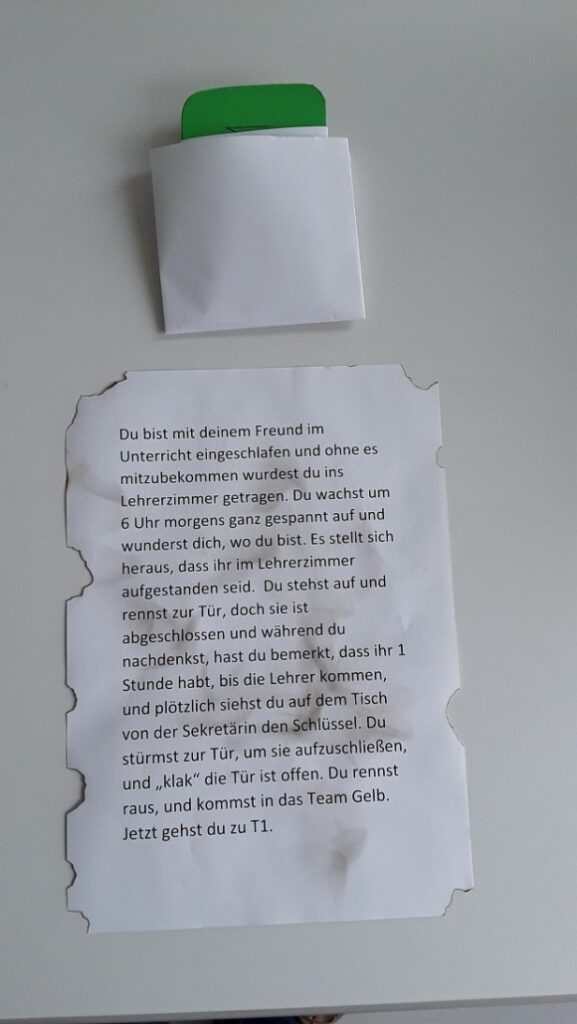 Du bist mit deinem Freund im
Unterricht eingeschlafen und ohne es
mitzubekommen wurdest du ins
Lehrerzimmer getragen. Du wachst um
6 Uhr morgens ganz gespannt auf und
wunderst dich, wo du bist. Es stellt sich
heraus, dass ihr im Lehrerzimmer
aufgestanden seid.  Du stehst auf und
rennst zur Tür, doch sie ist
abgeschlossen und während du
nachdenkst, hast du bemerkt, dass ihr 1
Stunde habt, bis die Lehrer kommen,
und plötzlich siehst du auf dem Tisch
von der Sekretärin den Schlüssel. Du
stürmst zur Tür, um sie aufzuschließen,
und „klak“ die Tür ist offen. Du rennst
raus, und kommst in das Team Gelb.
Jetzt gehst du zu T1.